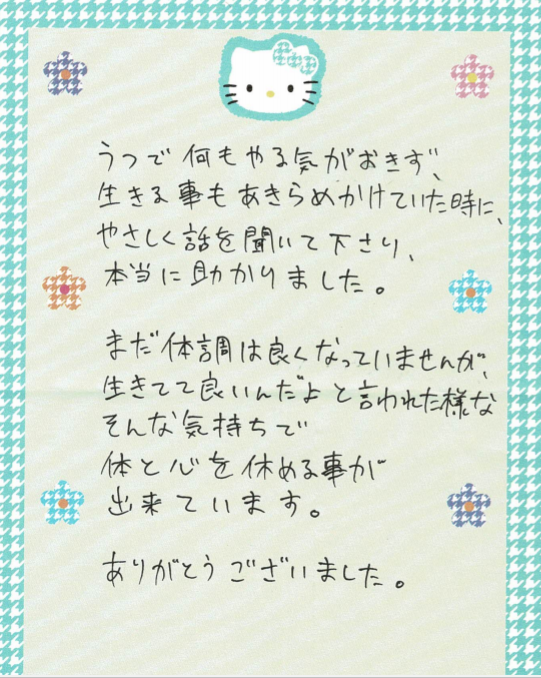 うつで何もやる気がおきず、
生きる事もあきらめかけていた時に、
やさしく話を聞いて下さり、
本当に助かりました。
まだ体調は良くなっていませんが、
生きてて良いんだよと言われた様な
そんな気持ちで
体と心を休める事が
出来ています。
ありがとうございました。